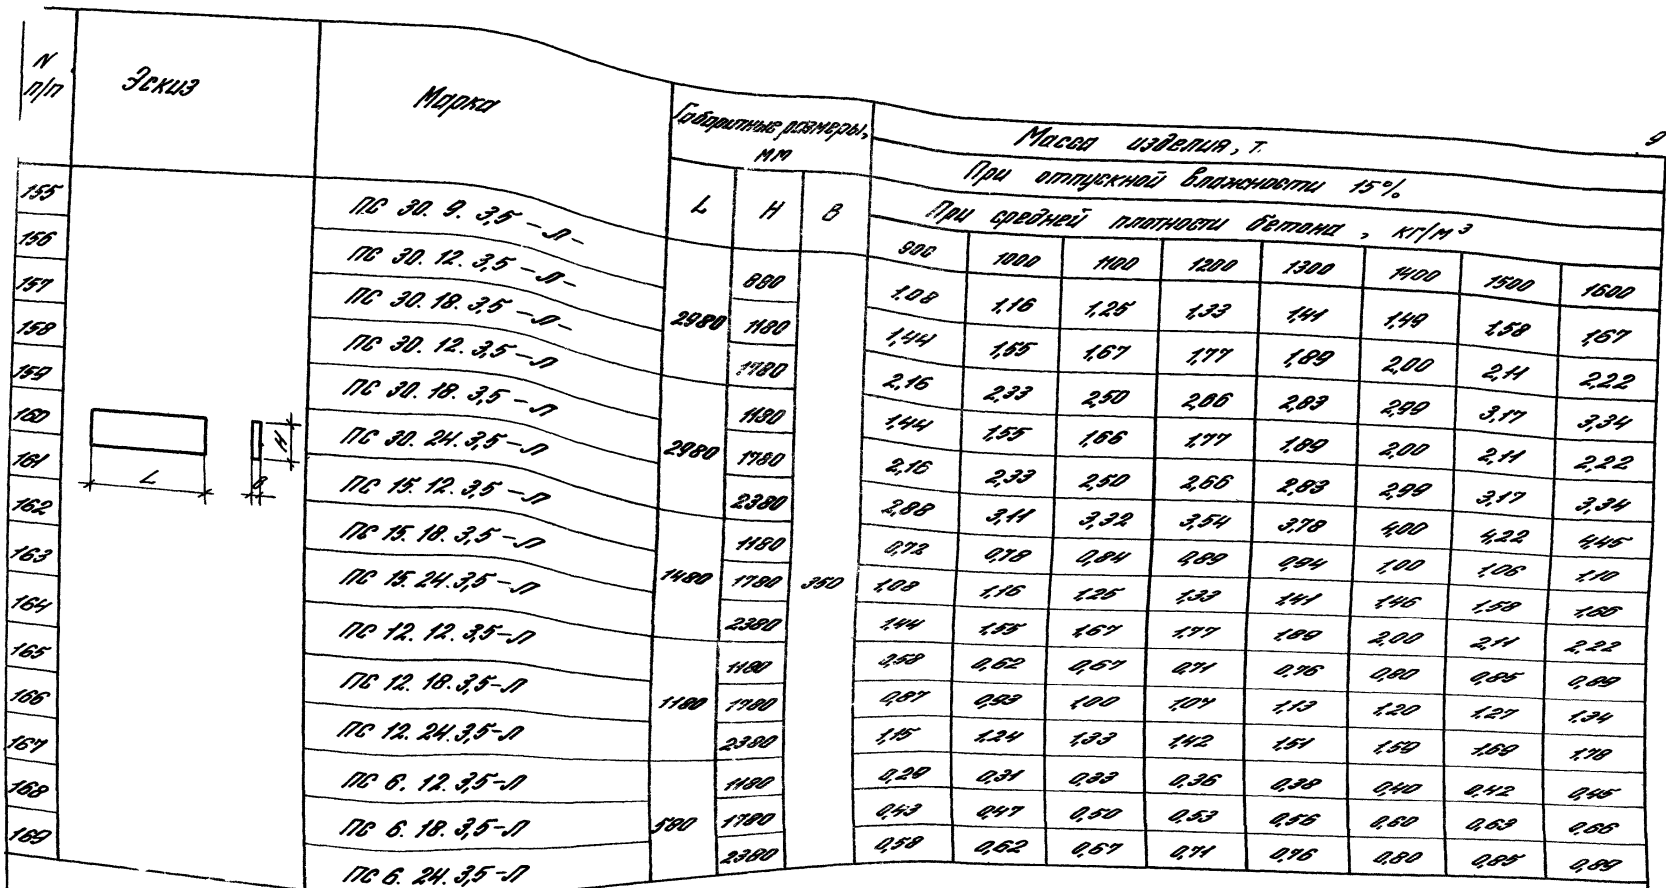 9
N п/п Эскиз Марка Габаритные размеры, мм Масса изделия, т.
При отпускной влажности 15%
L H B При средней плотности бетона, кг/м³
900 1000 1100 1200 1300 1400 1500 1600
155 ПС 30. 9. 3,5 -Л- 2980 880 350 1,08 1,16 1,25 1,33 1,41 1,49 1,58 1,67
156 ПС 30. 12. 3,5 -Л- 1180 1,44 1,55 1,67 1,77 1,89 2,00 2,11 2,22
157 ПС 30. 18. 3,5 -Л- 1780 2,16 2,33 2,50 2,66 2,83 2,99 3,17 3,34
158 ПС 30. 12. 3,5 -Л 2980 1180 1,44 1,55 1,66 1,77 1,89 2,00 2,11 2,22
159 ПС 30. 18. 3,5 -Л 1780 2,16 2,33 2,50 2,66 2,83 2,99 3,17 3,34
160 ПС 30. 24. 3,5 -Л 2380 2,88 3,11 3,32 3,54 3,78 4,00 4,22 4,45
161 ПС 15. 12. 3,5 -Л 1480 1180 0,72 0,78 0,84 0,89 0,94 1,00 1,06 1,10
162 ПС 15. 18. 3,5 -Л 1780 1,08 1,16 1,25 1,33 1,41 1,46 1,58 1,66
163 ПС 15. 24. 3,5 -Л 2380 1,44 1,55 1,67 1,77 1,89 2,00 2,11 2,22
164 ПС 12. 12. 3,5-Л 1180 1180 0,58 0,62 0,67 0,71 0,76 0,80 0,85 0,89
165 ПС 12. 18. 3,5-Л 1780 0,87 0,93 1,00 1,07 1,13 1,20 1,27 1,34
166 ПС 12. 24. 3,5-Л 2380 1,15 1,24 1,33 1,42 1,51 1,59 1,69 1,78
167 ПС 6. 12. 3,5-Л 580 1180 0,29 0,31 0,33 0,36 0,38 0,40 0,42 0,45
168 ПС 6. 18. 3,5-Л 1780 0,43 0,47 0,50 0,53 0,56 0,60 0,63 0,66
169 ПС 6. 24. 3,5-Л 2380 0,58 0,62 0,67 0,71 0,76 0,80 0,85 0,89
L B H